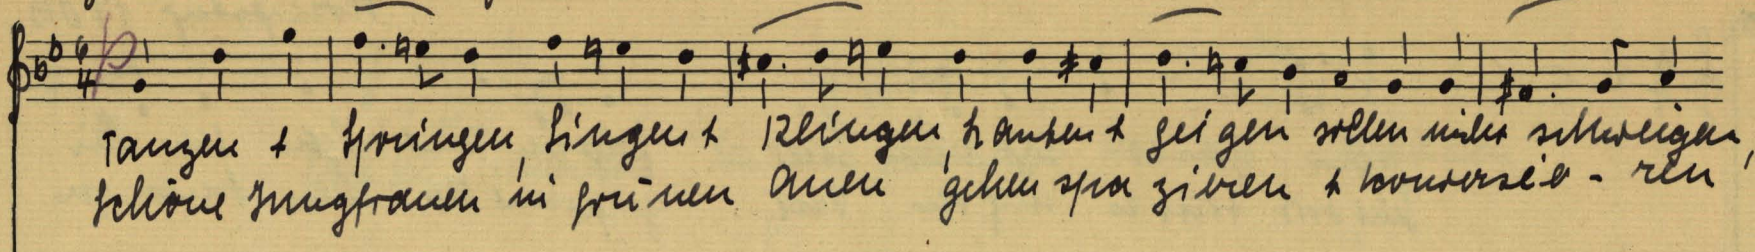 6
4
Tanzen + Springen, Singen + Klingen, Lauten + geigen sollen nicht schweigen,
schöne Jungfrauen in grünen Auen gehen spazieren + konversie - ren